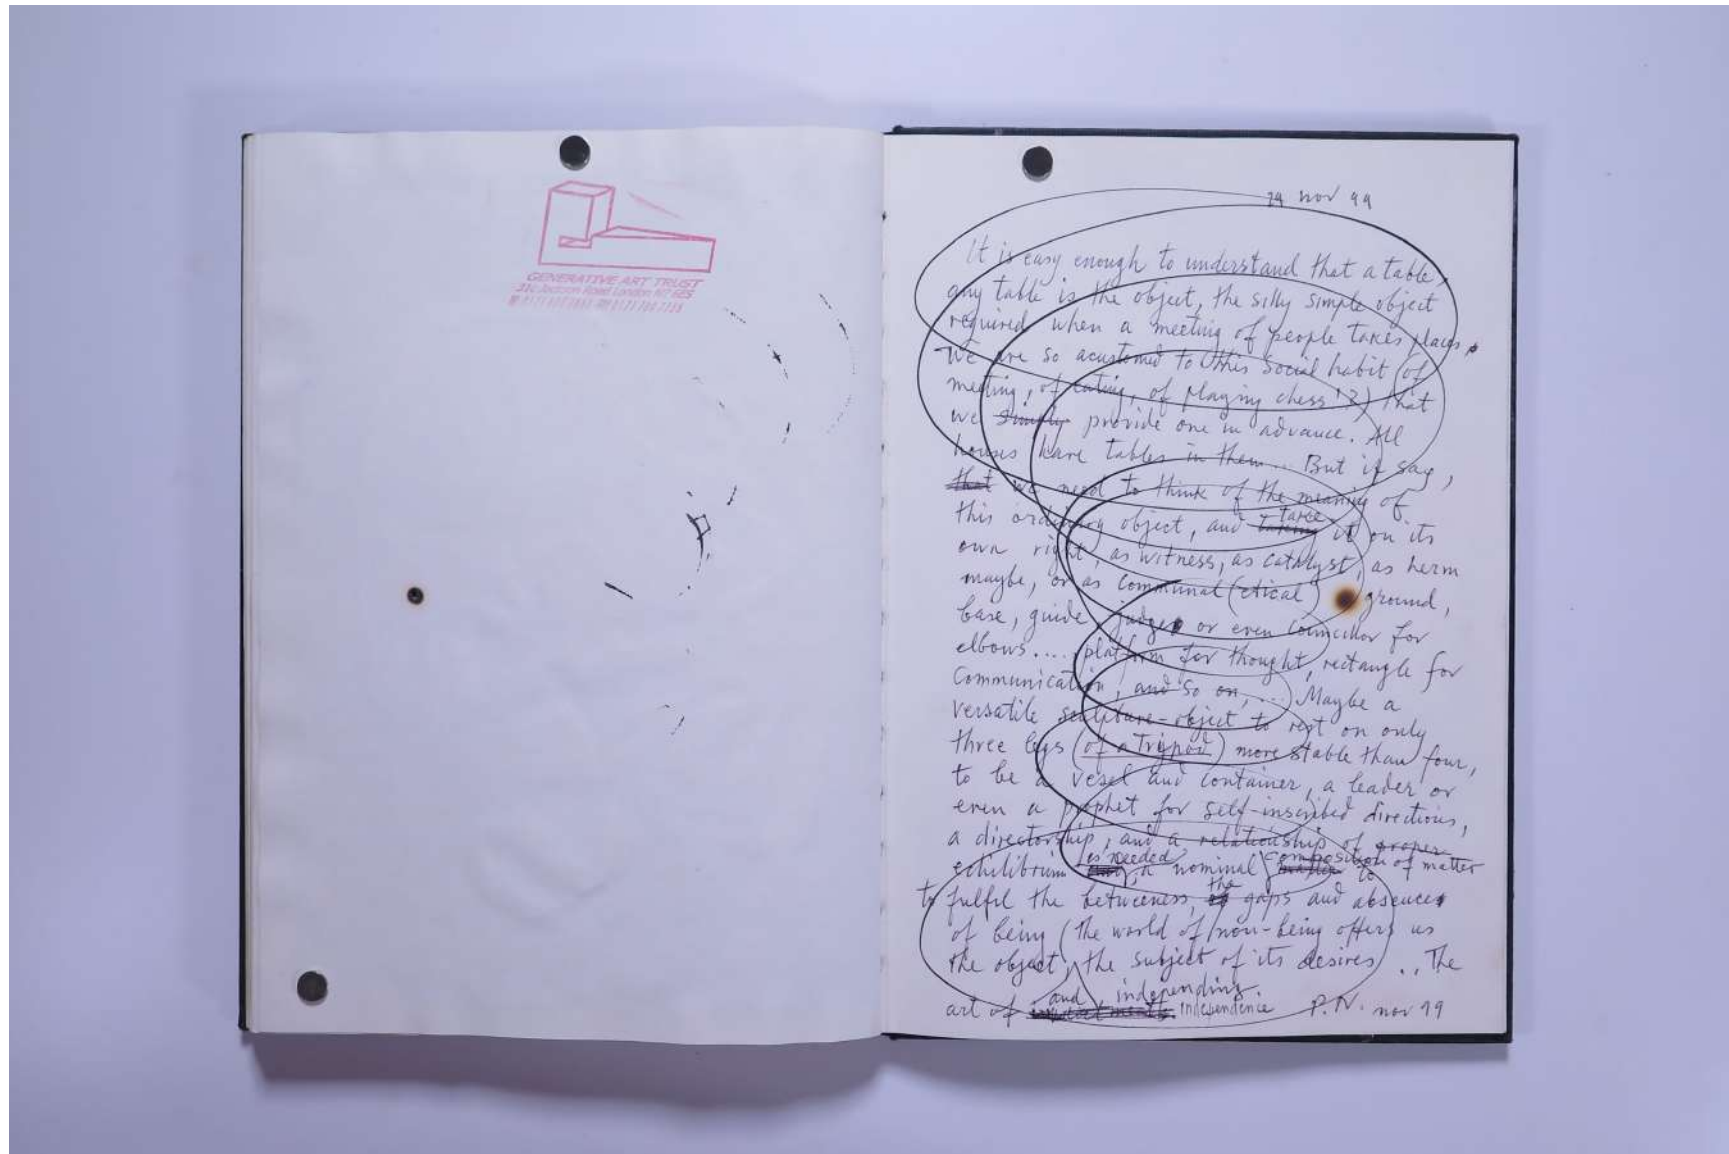 GENERATIVE ART TRUST
31c Jackson Road London N7 6ES
29 nov 99
It is easy enough to understand that a table,
any table is the object, the silly simple object
required when a meeting of people takes place.
We are so acustomed to this social habit (of
meeting, of eating, of playing chess!?) that
we simply provide one in advance. All
houses have tables in them... But i say,
that we need to think of the meaning of
this ordinary object, and take it on its
own right, as witness, as catalyst, as herm
maybe, or as communal (etical) ground,
base, guide judge or even councillor for
elbows..... platform for thought, rectangle for
Communication, and so on, ... Maybe a
versatile sculpture-object to rest on only
three legs (of a Tripod) more stable than four,
to be a vesel and container, a leader or
even a prophet for self-inscribed directions,
a directorship, and a relationship of proper
ehilibrium as needed, a nominal composition of matter
to fulfil the betweeness, the gaps and absences
of being (the world of non-being offers us
the object, the subject of its desires ... The
art of and independing independence P.N. nov 99